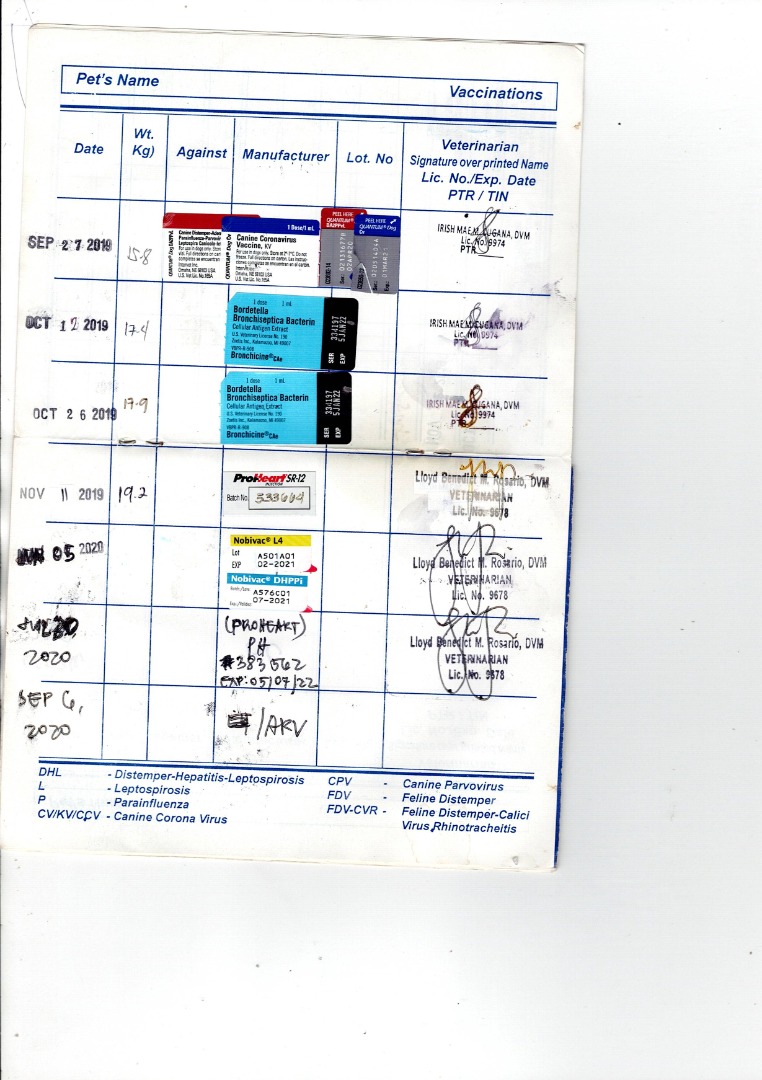 Pet's Name
Vaccinations
Date
Wt.
Kg)
Against
Manufacturer
Lot. No
Veterinarian
Signature over printed Name
Lic. No./Exp. Date
PTR / TIN
SEP 27 2019
15.8
Canine Coronavirus
Vaccine, KV
1 Dose/1 mL
Omaha, NE 68103 USA
U.S. Vet Lic. No.165A
PEEL HERE
QUANTUM® Dog
DA2PPvL
PEEL HERE
QUANTUM® Dog
Cv
IRISH MAE M. CUGANA, DVM
Lic. No. 9974
PTR
OCT 12 2019
17.4
1 dose 1 mL
Bordetella
Bronchiseptica Bacterin
Cellular Antigen Extract
U.S. Veterinary License No. 190
Zoetis Inc., Kalamazoo, MI 49007
Bronchicine®CAe
SER 334197
EXP 5JAN22
IRISH MAE M. CUGANA, DVM
Lic. No. 9974
PTR
OCT 26 2019
17.9
1 dose 1 mL
Bordetella
Bronchiseptica Bacterin
Cellular Antigen Extract
U.S. Veterinary License No. 190
Zoetis Inc., Kalamazoo, MI 49007
Bronchicine®CAe
SER 334197
EXP 5JAN22
IRISH MAE M. CUGANA, DVM
Lic. No. 9974
PTR
NOV 11 2019
19.2
ProHeart® SR-12
INJECTION
Batch No. 533664
Lloyd Benedict M. Rosario, DVM
VETERINARIAN
Lic. No. 9678
JUN 05 2020
Nobivac® L4
Lot A501A01
EXP 02-2021
Nobivac® DHPPi
A576C01
07-2021
Lloyd Benedict M. Rosario, DVM
VETERINARIAN
Lic. No. 9678
2020
(PROHEART)
PH
#383562
EXP: 05/07/22
Lloyd Benedict M. Rosario, DVM
VETERINARIAN
Lic. No. 9678
SEP 6,
2020
/ARV
DHL - Distemper-Hepatitis-Leptospirosis
L - Leptospirosis
P - Parainfluenza
CV/KV/CCV - Canine Corona Virus
CPV - Canine Parvovirus
FDV - Feline Distemper
FDV-CVR - Feline Distemper-Calici
Virus Rhinotracheitis